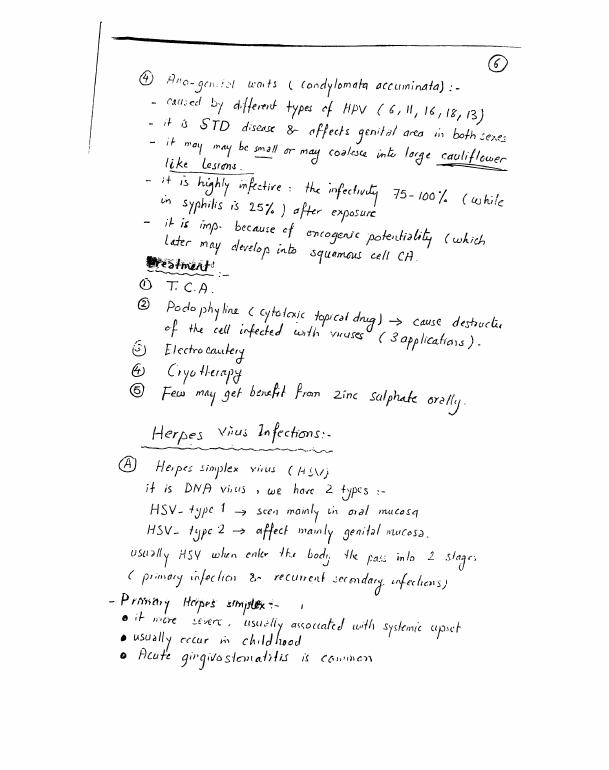 6
④ Ano-genital warts ( Condylomata accuminata) :-
- caused by different types of HPV ( 6, 11, 16, 18, 13)
- it is STD disease & affects genital area in both sexes
- it may may be small or may coalesce into large cauliflower
like lesions.
- it is highly infective : the infectivity 75-100% ( while
in syphilis is 25% ) after exposure
- it is imp. because of oncogenic potentiality ( which
later may develop into squamous cell CA.
Treatment :-
① T.C.A.
② Podophyline ( cytotoxic topical drug) → cause destructe
of the cell infected with viruses ( 3 applications ).
③ Electrocautery
④ Cryotherapy
⑤ Few may get benefit from zinc sulphate orally.
Herpes Virus Infections:-
Ⓐ Herpes simplex virus ( HSV)
it is DNA virus, we have 2 types :-
HSV- type 1 → seen mainly in oral mucosa
HSV- type 2 → affect mainly genital mucosa.
usually HSV when enter the body the pass into 2 stages
( primary infection & recurrent secondary infections)
- Primary Herpes simplex :-
• it more severe, usually associated with systemic upset
• usually occur in childhood
• Acute gingivostomatitis is common